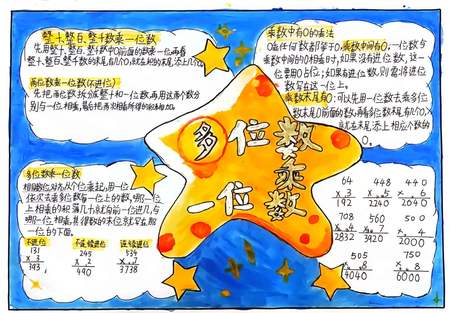 整十、整百、整千数乘一位数
先用整十、整百、整千数中0前面的数乘一位数,再看
整十、整百、整千数的末尾有几个0,就在积的末尾添上几个0。
两位数乘一位数(不进位)
先把两位数拆分成整十和一位数,再用这两个数分
别与一位相乘,最后把两次相乘所得的积相加。
乘数中有0的乘法
0乘任何数都等于0,乘数中间有0,一位数与
乘数中间的0相乘时,如果没有进位数,这一
位要用0占位;如果有进位数,则需将进位
数写在这一位上。
乘数末尾有0:可以先用一位数去乘多位
数末尾0前面的数,再看多位数末尾有几个0,
就在末尾添上相应个数的
0
多位数
乘
一位数
多位数乘一位数
相同数位对齐,从个位乘起,用一位
依次去乘多位数每一位上的数,哪一位
上相乘的积满几十就向前一位进几,与
哪一位相乘,其得数的末位就写在那
一位的下面。
不进位 不连续进位 连续进位
131 245 534
x 3 x 2 x 7
393 490 3738
64 448 440
x 3 x 5 x 6
192 2240 2640
708 560 500
x 4 x 7 x 4
2832 3920 2000
505 750
x 8 x 8
4040 6000